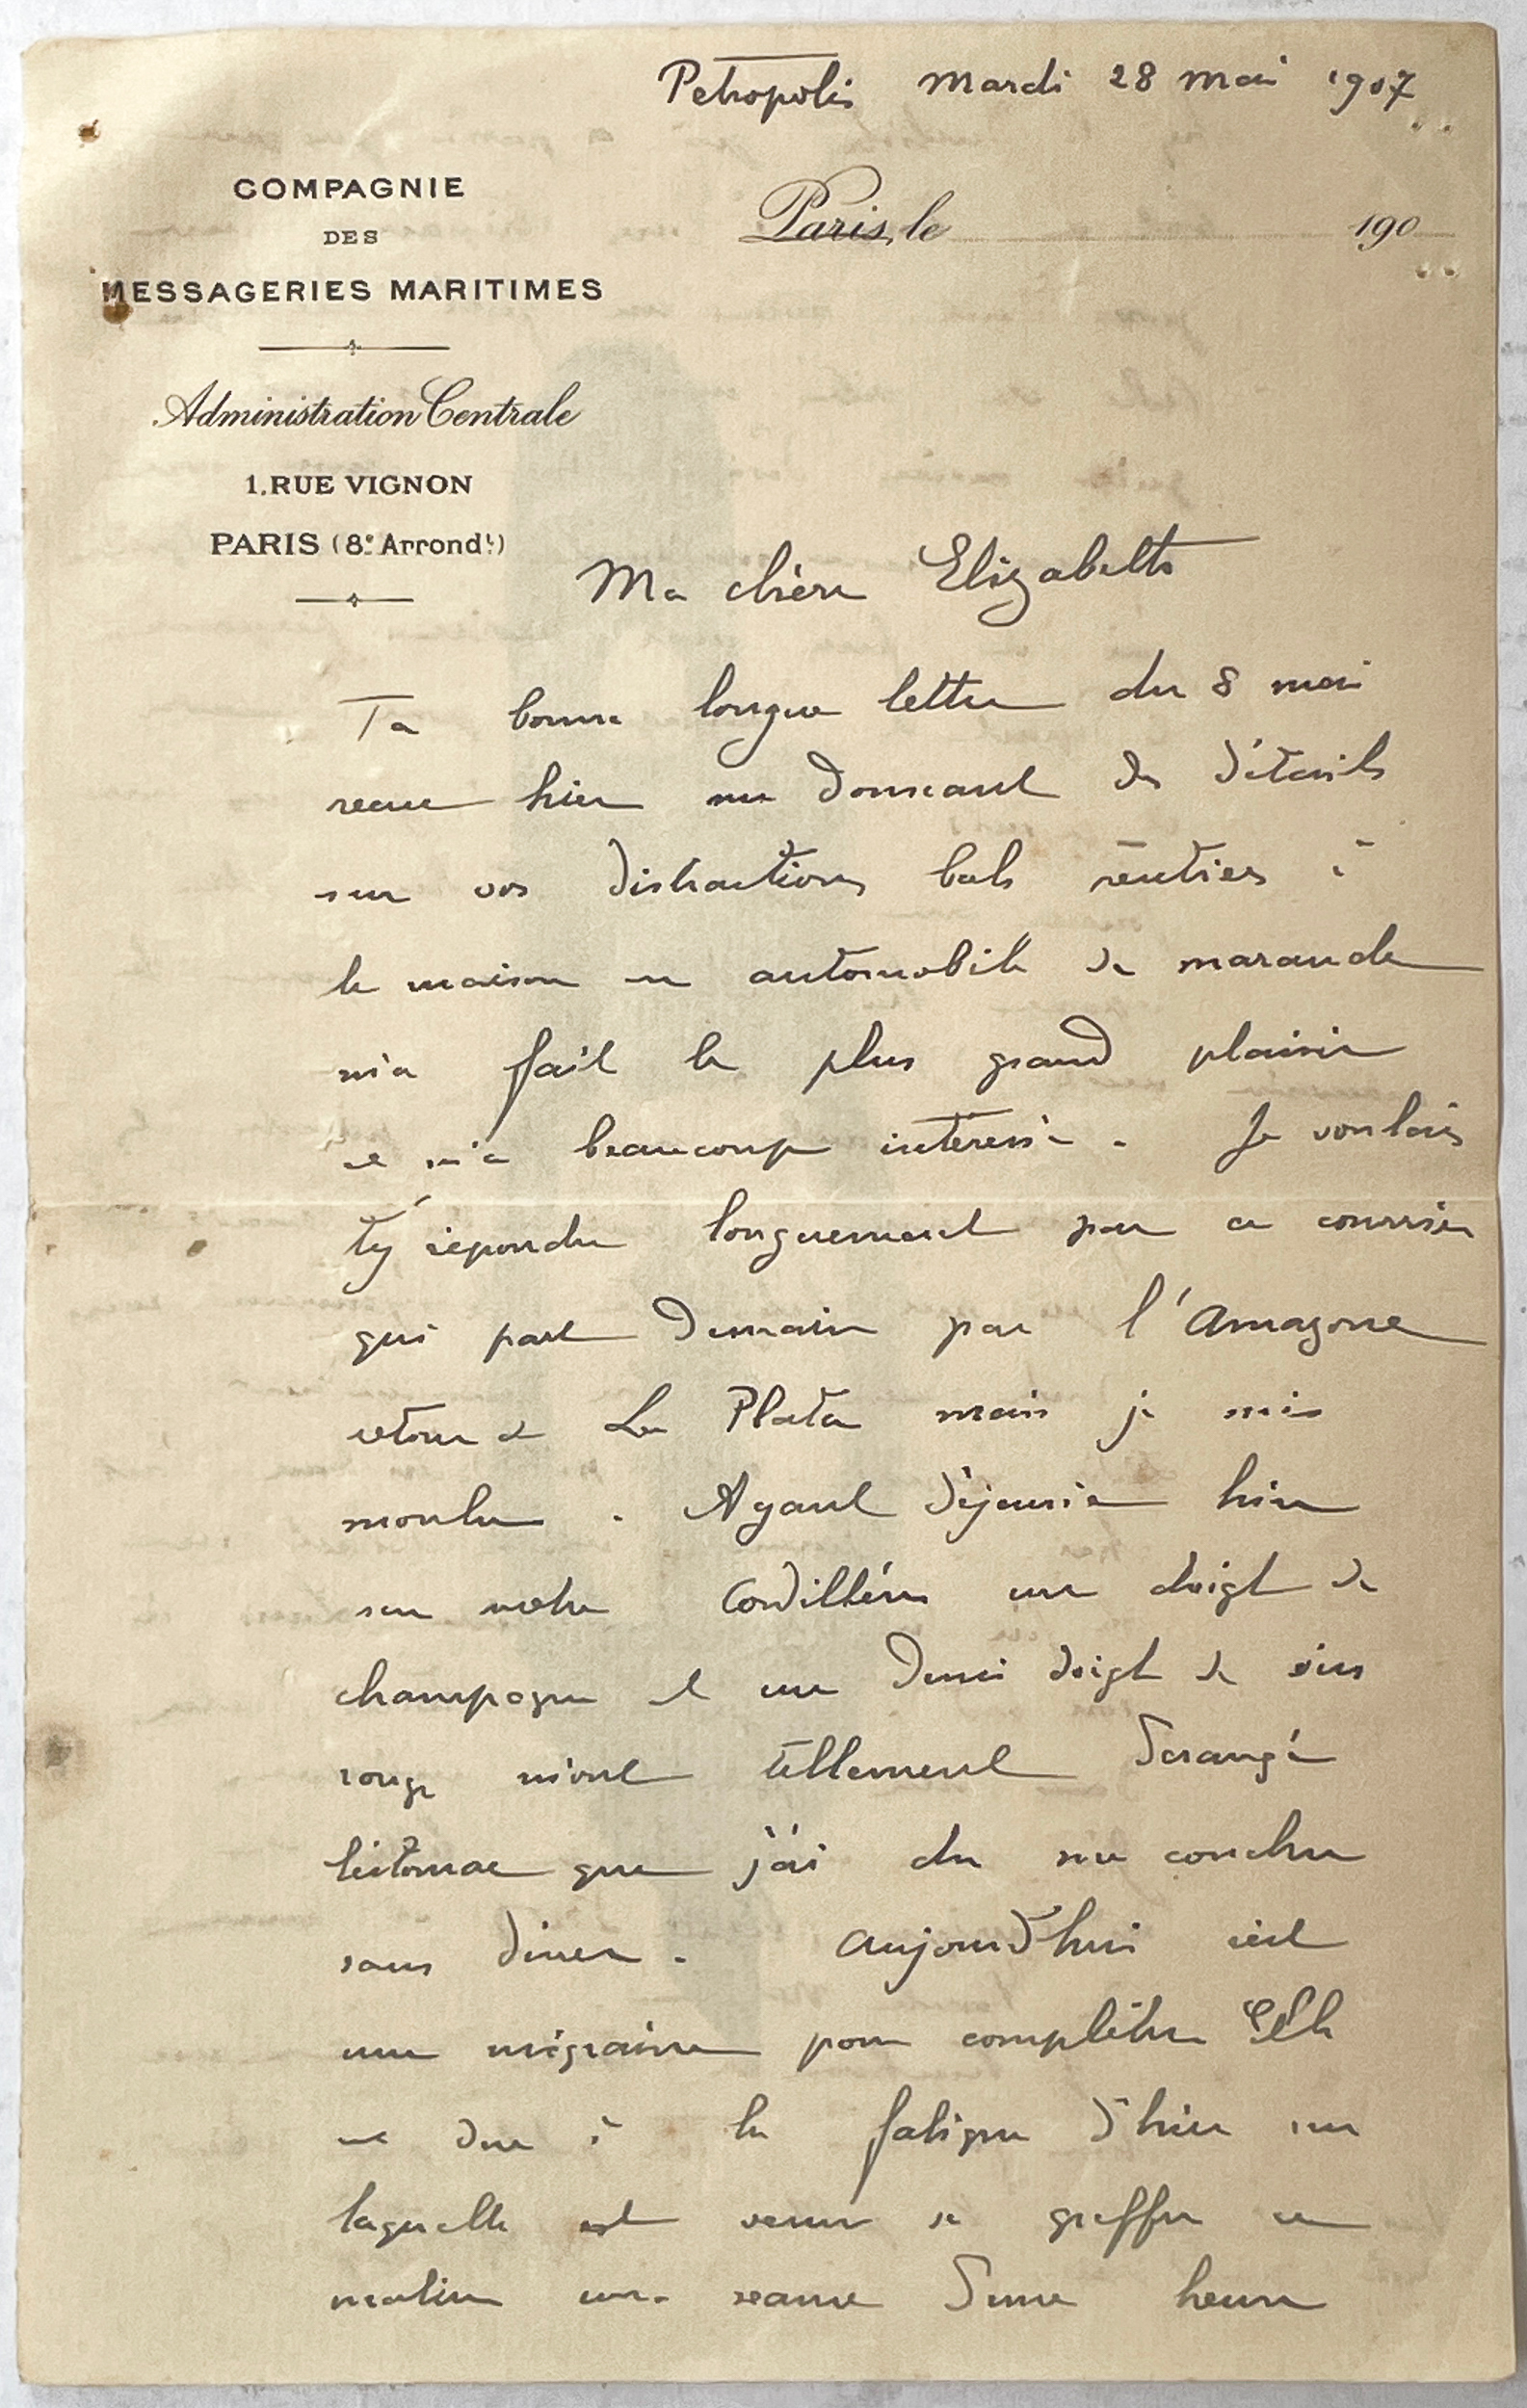 Petropolis mardi 28 mai 1907
COMPAGNIE
DES
MESSAGERIES MARITIMES
Administration Centrale
1, RUE VIGNON
PARIS (8e Arrondt)
Paris, le 190
Ma chère Elizabeth
Ta bonne longue lettre du 8 mai
recue hier me donnant des détails
sur vos distractions bals rentrées à
la maison en automobile de maraude
m'a fait le plus grand plaisir
et m'a beaucoup interessé. Je voulais
t'y répondre longuement par ce courrier
qui part demain par l'Amazone
retour de La Plata mais je suis
moulu. Ayant déjeuné hier
sur notre Cordillère un doigt de
champagne et un demi doigt de vin
rouge m'ont tellement derangé
l'estomac que j'ai du me coucher
sans diner. Aujourd'hui c'est
une migraine pour completer Elle
est due à la fatigue d'hier sur
laquelle est venue se greffer ce
matin une seance d'une heure